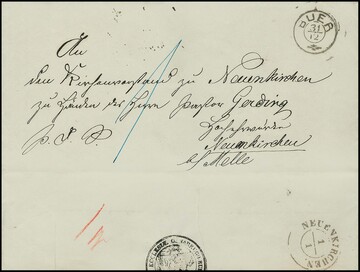 BUER
31
12
An
den Kirchenvorstand zu Neuenkirchen
zu Händen des Herrn Pastor Gerding
Hochehrwürden
p. S. P.
Neuenkirchen
b/ Melle
NEUENKIRCHEN
1
1